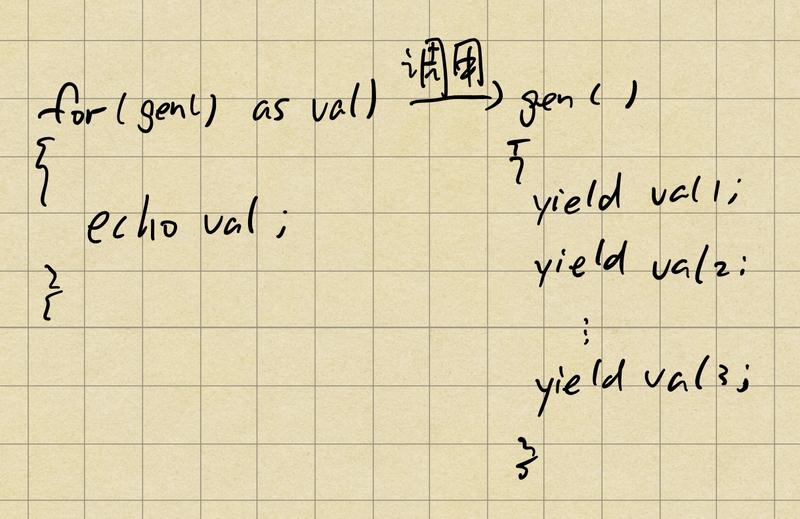 for(gen() as val)
{
echo val;
}
调用
gen()
{
yield val1;
yield val2;
⋮
yield val3;
}